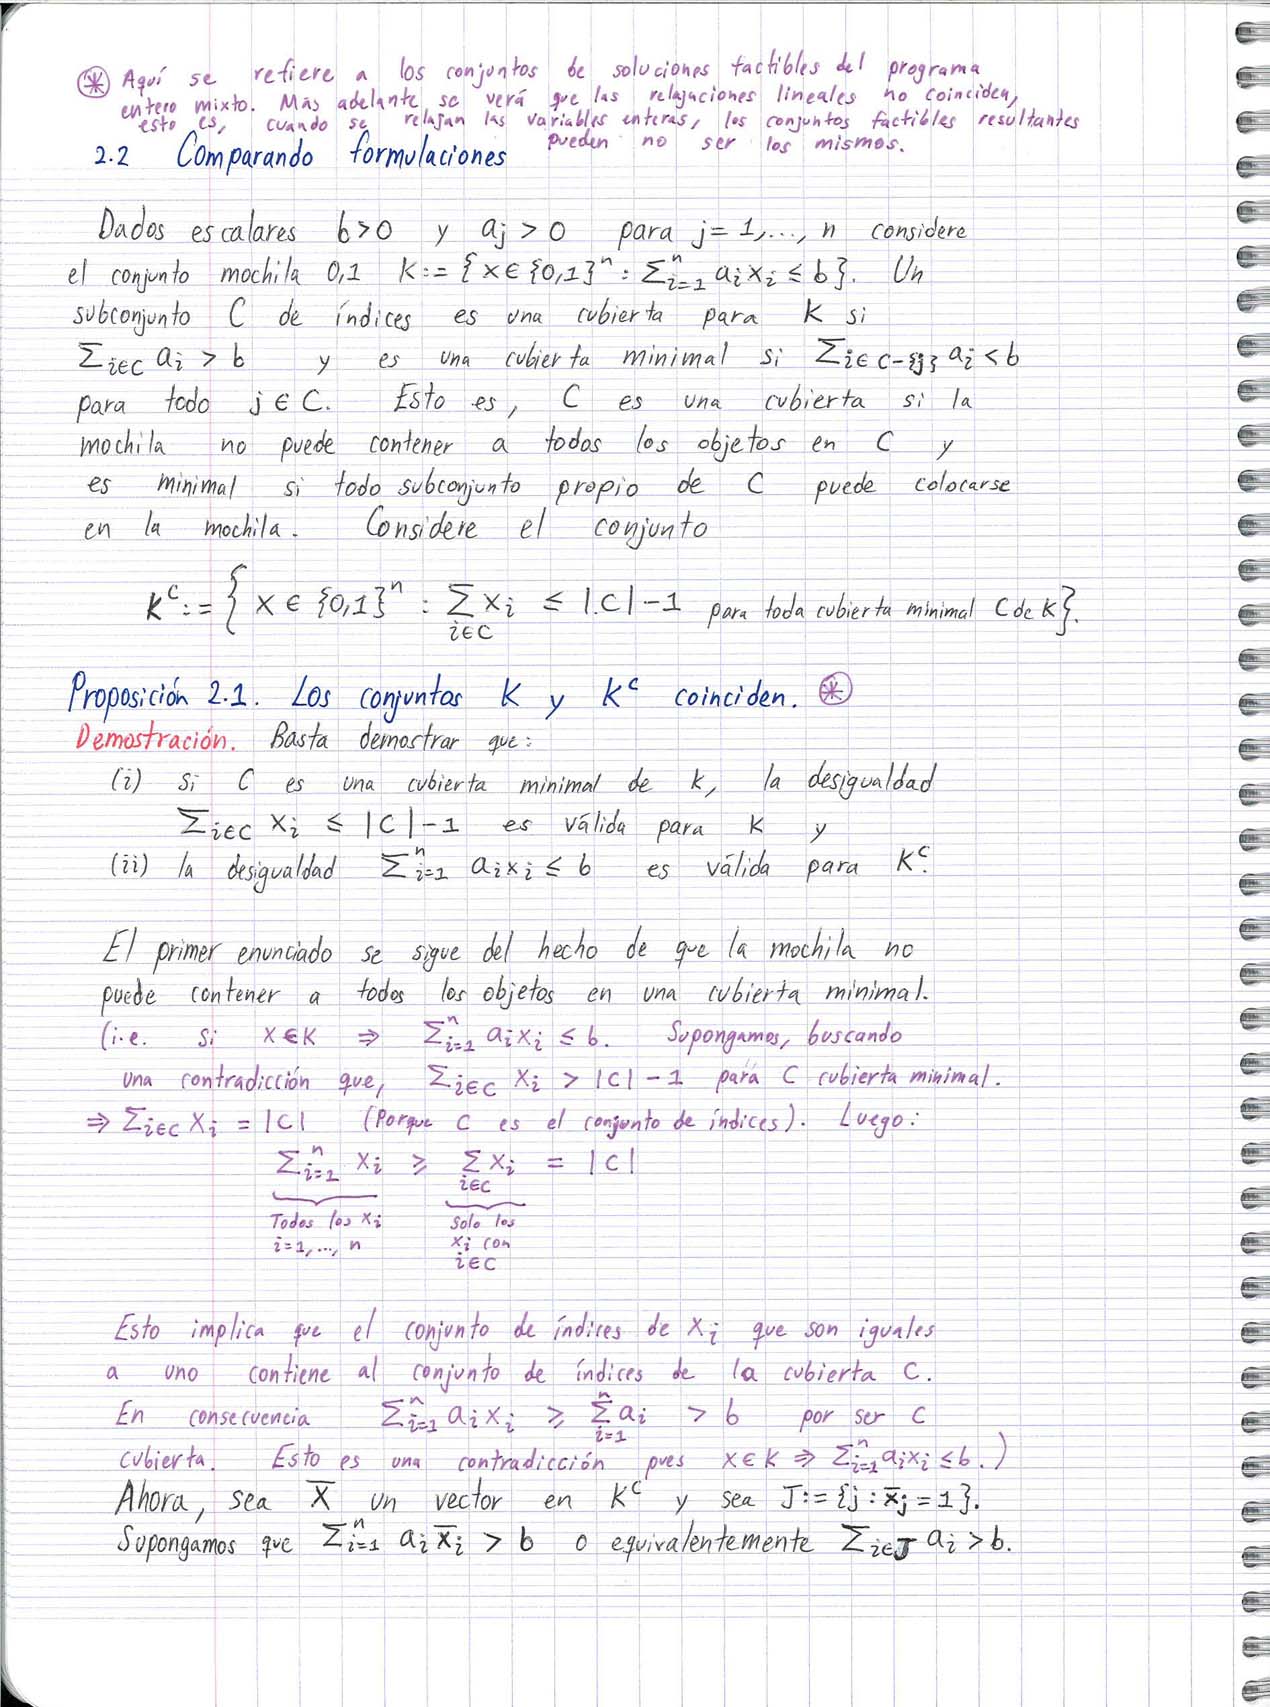 ⊛ Aquí se refiere a los conjuntos de soluciones factibles del programa
entero mixto. Más adelante se verá que las relajaciones lineales no coinciden,
esto es, cuando se relajan las variables enteras, los conjuntos factibles resultantes
pueden no ser los mismos.
2.2 Comparando formulaciones
Dados escalares b>0 y aⱼ > 0 para j=1,..., n considere
el conjunto mochila 0,1 K:= {x∈{0,1}ⁿ : Σⁿᵢ₌₁ aᵢxᵢ ≤ b}. Un
subconjunto C de índices es una cubierta para K si
Σ_{i∈C} aᵢ > b y es una cubierta minimal si Σ_{i∈C-{j}} aᵢ < b
para todo j ∈ C. Esto es, C es una cubierta si la
mochila no puede contener a todos los objetos en C y
es minimal si todo subconjunto propio de C puede colocarse
en la mochila. Considere el conjunto
K^C := { x ∈ {0,1}ⁿ : Σ_{i∈C} xᵢ ≤ |C|-1 para toda cubierta minimal C de K}.
Proposición 2.1. Los conjuntos K y K^C coinciden. ⊛
Demostración. Basta demostrar que:
(i) Si C es una cubierta minimal de K, la desigualdad
Σ_{i∈C} xᵢ ≤ |C|-1 es válida para K y
(ii) la desigualdad Σⁿᵢ₌₁ aᵢxᵢ ≤ b es válida para K^C.
El primer enunciado se sigue del hecho de que la mochila no
puede contener a todos los objetos en una cubierta minimal.
(i.e. si x∈K ⇒ Σⁿᵢ₌₁ aᵢxᵢ ≤ b. Supongamos, buscando
una contradicción que, Σ_{i∈C} xᵢ > |C|-1 para C cubierta minimal.
⇒ Σ_{i∈C} xᵢ = |C| (Porque C es el conjunto de índices). Luego:
Σⁿᵢ₌₁ xᵢ ≥ Σ_{i∈C} xᵢ = |C|
Todos los xᵢ i=1,..., n
Solo los xᵢ con i∈C
Esto implica que el conjunto de índices de xᵢ que son iguales
a uno contiene al conjunto de índices de la cubierta C.
En consecuencia Σⁿᵢ₌₁ aᵢxᵢ ≥ Σⁿᵢ₌₁ aᵢ > b por ser C
cubierta. Esto es una contradicción pues x∈K ⇒ Σⁿᵢ₌₁ aᵢxᵢ ≤ b.)
Ahora, sea x̄ un vector en K^C y sea J:= {j : x̄ⱼ = 1}.
Supongamos que Σⁿᵢ₌₁ aᵢx̄ᵢ > b o equivalentemente Σ_{i∈J} aᵢ > b.